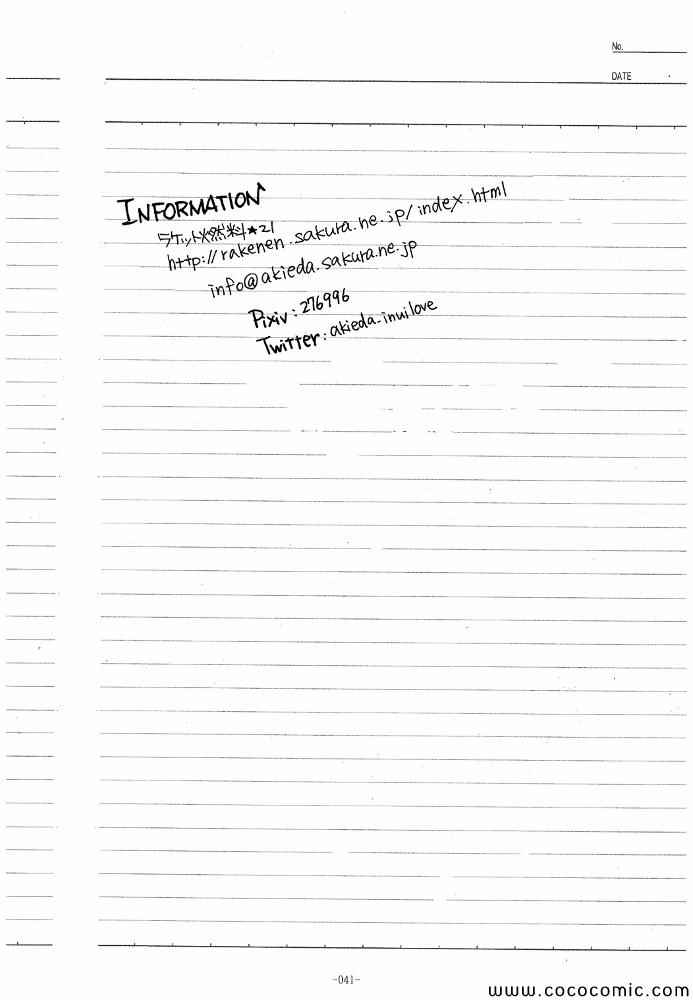 No.
DATE
INFORMATION
ラケット燃料★21
http://rakenen.sakura.ne.jp/index.html
info@akieda.sakura.ne.jp
Pixiv:276996
Twitter:akieda_inuilove
-041-
www.cococomic.com